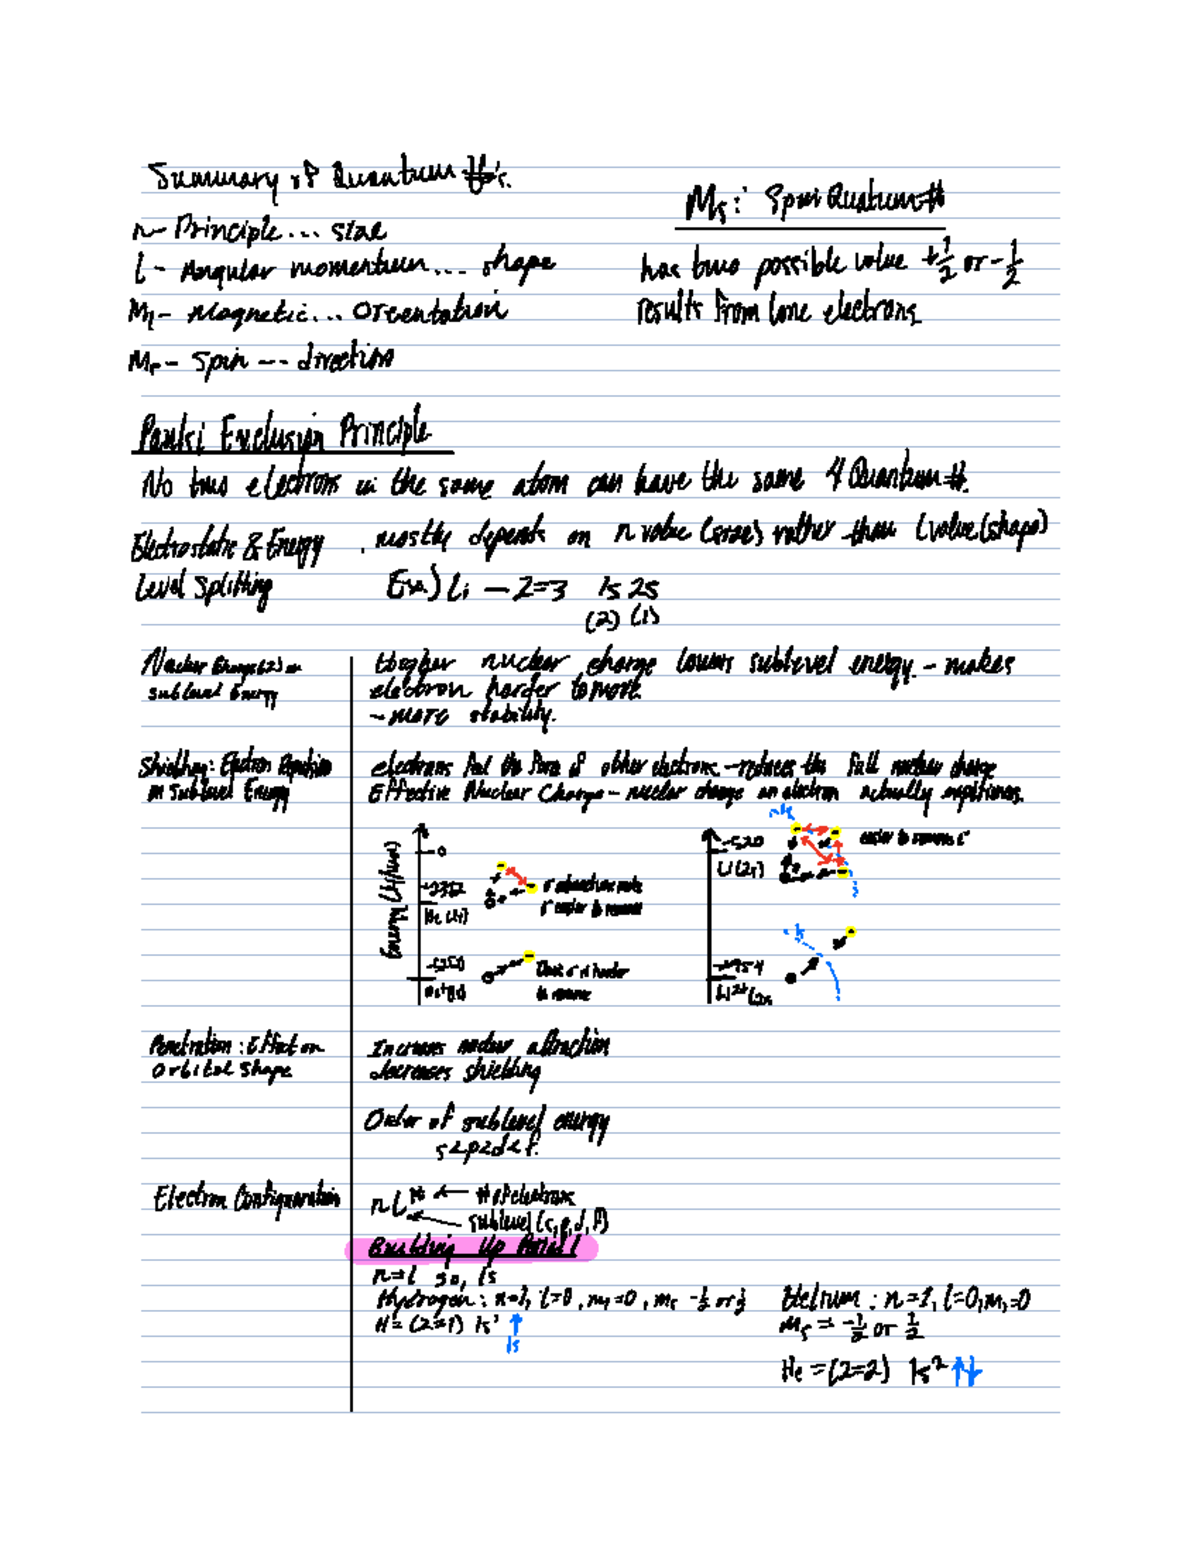 Summary of Quantum #'s.
n- Principle... size
l- Angular momentum... shape
Ml- Magnetic... Orientation
Ms- Spin --- direction
Ms: Spin Quatum #
has two possible value +1/2 or -1/2
results from lone electrons
Pauli Exclusion Principle
No two electrons in the same atom can have the same 4 Quantum #.
Electrostatic & Energy
Level Splitting
. mostly depends on n value (size) rather than l value (shape)
Ex.) Li - Z=3 1s 2s
(2) (1)
Nuclear Charge (Z) on
sublevel Energy
Higher nuclear charge lowers sublevel energy. - makes
electron harder to move.
- more stability.
Shielding: Electron Repulsion
on Sublevel Energy
electrons feel the force of other electrons - reduces the full nuclear charge
Effective Nuclear Charge - nuclear charge an electron actually experiences.
Energy (kJ/mol)
0
-2372
He (1s)
e⁻ easier to remove
-5250
He+ (1s)
harder
to remove
-520
Li (2s)
easier to remove e⁻
Li2+ (2s
Penetration: Effect on
Orbital Shape
Increases nuclear attraction
decreases shielding
Order of sublevel energy
s<p<d<f.
Electron Configuration
nl# ← # of electrons
sublevel (s,p,d,f)
Building Up
n=1 so, 1s
Hydrogen: n=1, l=0, ml=0, ms -1/2 or 1/2
H= (Z=1) 1s¹ ↑
1s
Helium: n=1, l=0, ml=0
Ms = -1/2 or 1/2
He = (Z=2) 1s² ↑↓